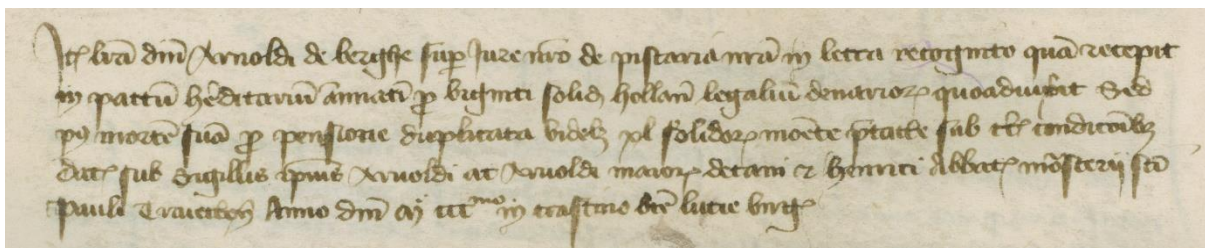 Itē lrā dn̄i Arnoldi de berghe sup̱ Jure nr̄o de pistaria nr̄a in lecca recognito quā recepit
in pactū hēditariū annatī ꝓ viginti solid hollan̄ legaliū denarioꝝ quoad vix͛it Sed
pꝰ mortē suā ꝓ pensione duplicata videlꝫ xl solidoꝝ monēte p̄tacte sub condiconibꝫ
datꝭ sub Sigillis ip̄ius Arnoldi ac Arnoldi maioꝝ decani ⁊ henrici Abbatꝭ mōsterij sc̄i
Pauli Traiecten̄ Anno dn̄i in crastino bt̄e lucie virgꝭ